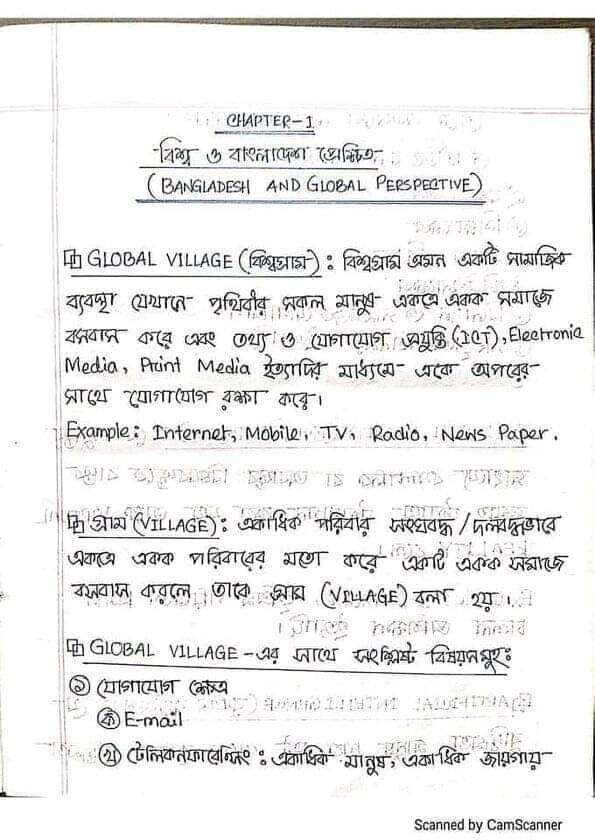 CHAPTER-1
বিশ্ব ও বাংলাদেশ প্রেক্ষিত
(BANGLADESH AND GLOBAL PERSPECTIVE)
GLOBAL VILLAGE (বিশ্বগ্রাম) : বিশ্বগ্রাম এমন একটি সামাজিক
ব্যবস্থা যেখানে পৃথিবীর সকল মানুষ একত্রে একক সমাজে
বসবাস করে এবং তথ্য ও যোগাযোগ প্রযুক্তি (ICT), Electronic
Media, Print Media ইত্যাদির মাধ্যমে একে অপরের
সাথে যোগাযোগ রক্ষা করে।
Example: Internet, Mobile, TV, Radio, News Paper.
গ্রাম (VILLAGE) : একাধিক পরিবার সংঘবদ্ধ / দলবদ্ধভাবে
একত্রে একক পরিবারের মতো করে একটি একক সমাজে
বসবাস করলে তাকে গ্রাম (VILLAGE) বলা হয়।
GLOBAL VILLAGE -এর সাথে সংশ্লিষ্ট বিষয়সমূহঃ
১ যোগাযোগ ক্ষেত্র
ক E-mail
খ টেলিকনফারেন্সিং : একাধিক মানুষ, একাধিক জায়গায়
Scanned by CamScanner